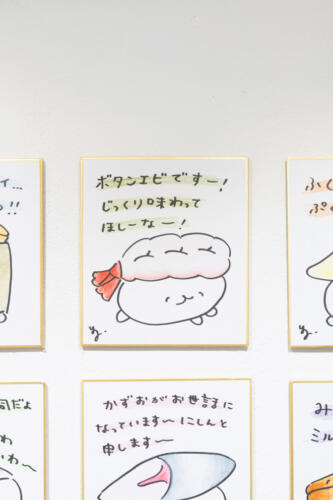 ィ…
!!
ボタンエビですー!
じっくり味わって
ほしーなー!
ふじ
ぷ
司だよ
わ
わ〜
かずおがお世話に
なっています〜にしんと
申します〜
み
ミル